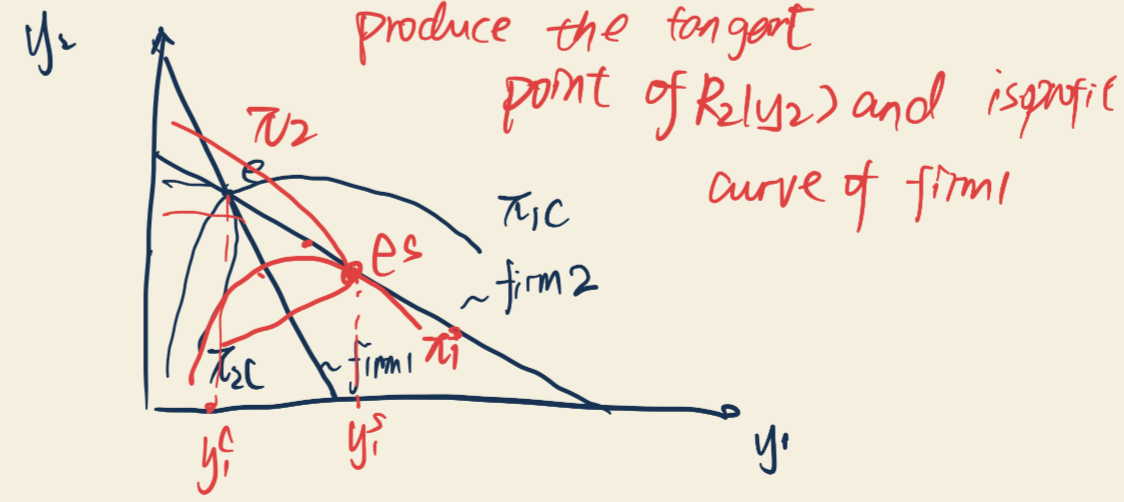 y₂
produce the tangent
point of R₂(y₂) and isoprofit
curve of firm1
π₂
e
π₁c
es
~ firm2
π₂c
~ firm1
π₁
y₁ᶜ
y₁ˢ
y₁